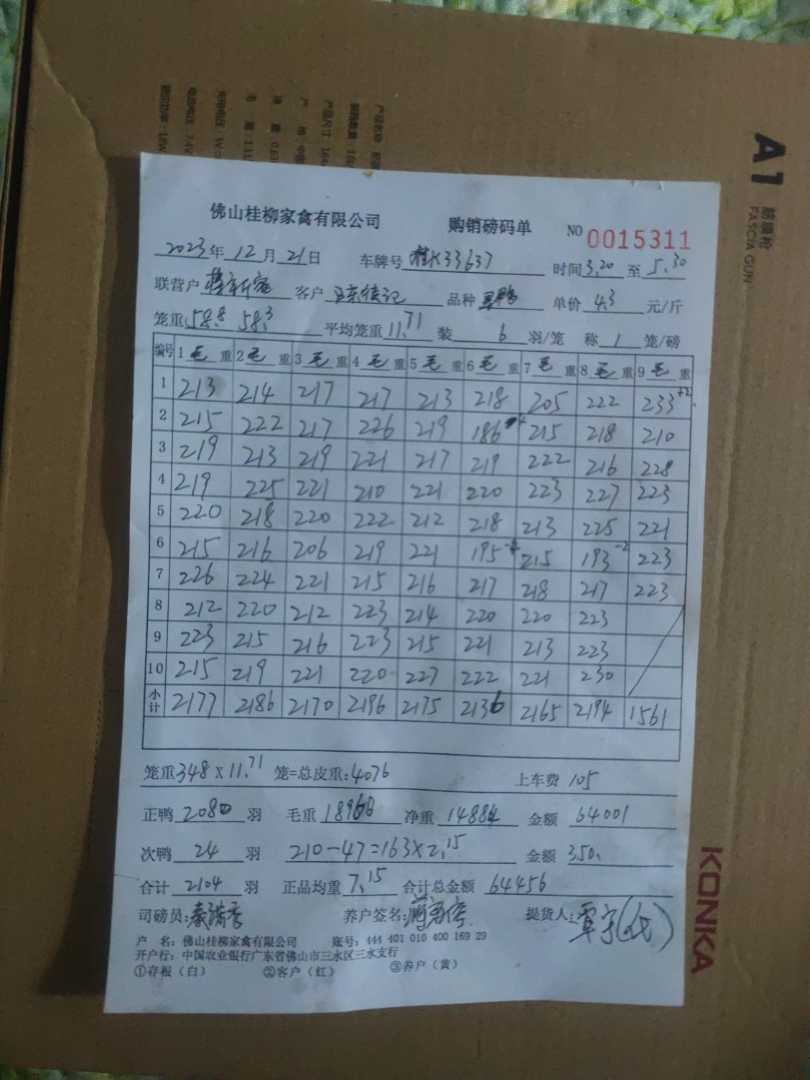 A1 筋膜枪
FASCIA GUN
KONKA
佛山桂柳家禽有限公司 购销磅码单 NO 0015311
2023年12月21日 车牌号 桂K33637 时间3.20至5.30
联营户 客户 品种 单价 4.3 元/斤
笼重:58.8 58.3 平均笼重11.71 装 6 羽/笼 称 1 笼/磅
编号 1毛重 2毛重 3毛重 4毛重 5毛重 6毛重 7毛重 8毛重 9毛重
1 213 214 217 217 213 218 205 222 233+2
2 215 222 217 226 219 186 215 218 210
3 219 213 219 221 217 219 222 216 228
4 219 225 221 210 221 220 223 227 223
5 220 218 220 222 212 218 213 225 221
6 215 216 206 219 221 195 215 193-2 223
7 226 224 221 215 216 217 218 217 223
8 212 220 212 223 214 220 220 223
9 223 215 216 223 215 221 213 223
10 215 219 221 220 227 222 221 230
小计 2177 2186 2170 2196 2175 2136 2165 2194 1561
笼重348×11.71 笼=总皮重:4076 上车费 105
正鸭 2080 羽 毛重 18960 净重 14884 金额 64001
次鸭 24 羽 210-47=163×2.15 金额 350.
合计 2104 羽 正品均重 7.15 合计总金额 64456
司磅员: 养户签名: 提货人: 覃宇(代)
户 名:佛山桂柳家禽有限公司 账号:444 401 010 400 169 29
开户行:中国农业银行广东省佛山市三水区三水支行
①存根(白) ②客户(红) ③养户(黄)